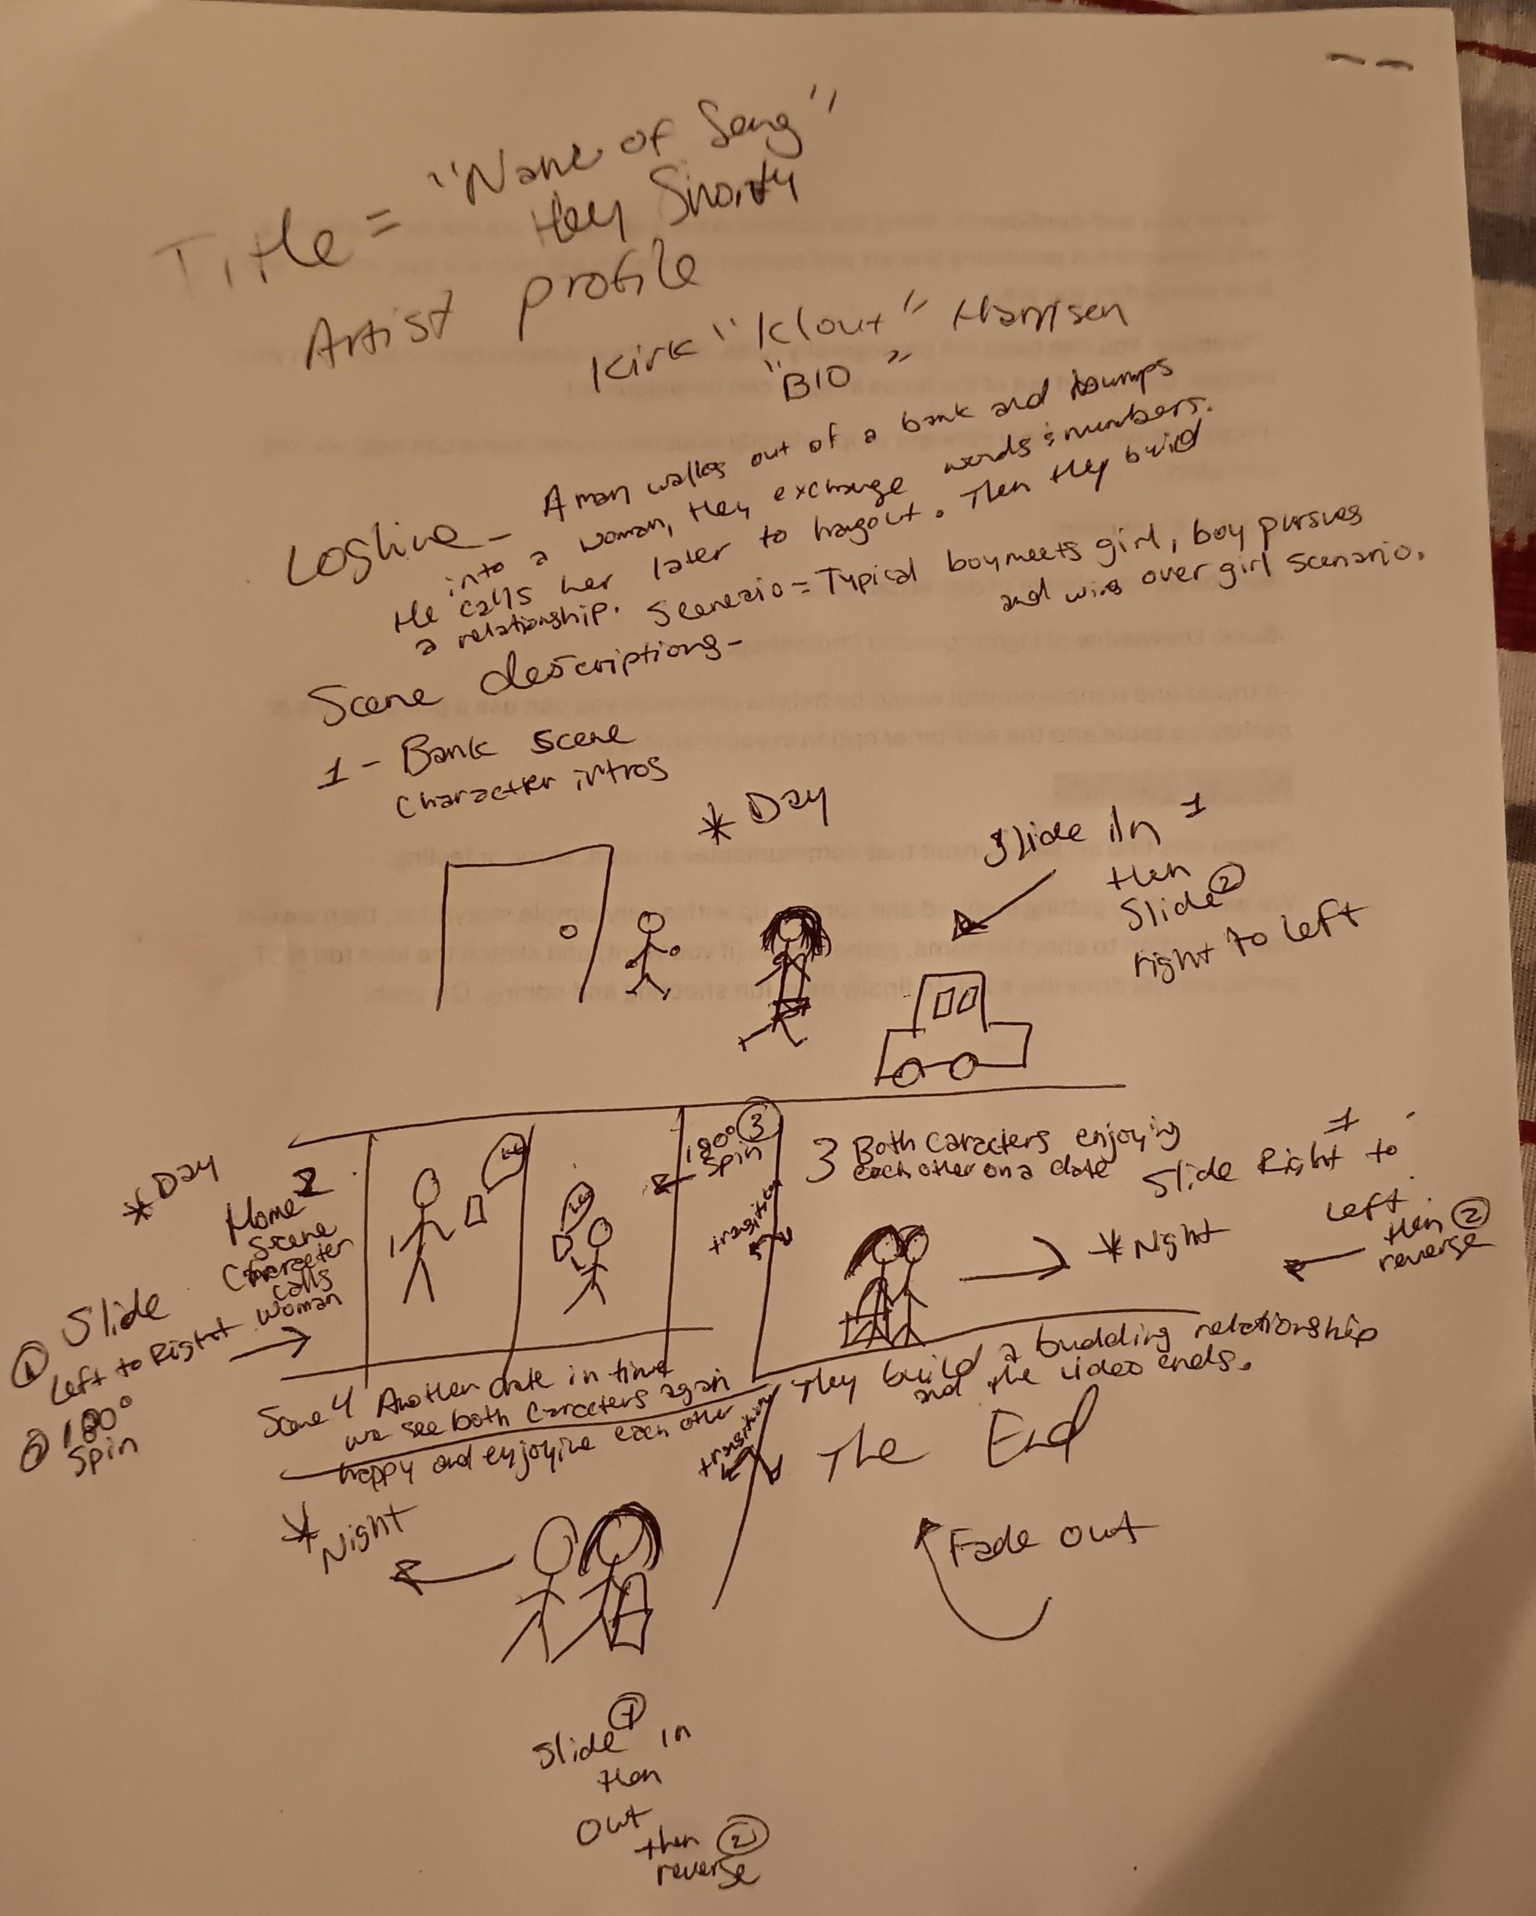 Title = "Name of Song"
Hey Shorty
Artist profile
Kirk "Klout" Harrisen
"BIO"
Logline - A man walks out of a bank and bumps
into a woman, they exchange words & numbers.
He calls her later to hangout. Then they build
a relationship. Scenerio = Typical boy meets girl, boy pursues
and wins over girl scenario.
Scene descriptions -
1 - Bank scene
Character intros
* Day
Slide in 1
then
Slide ②
right to left
* Day
Home 2
Scene
Character
calls
woman
① Slide
Left to Right
② 180°
Spin
180° ③
Spin
transition
3 Both caracters enjoying
each other on a date
Slide Right to 1
Left
then ②
reverse
* Night
Scene 4 Another date in time
we see both caracters again
happy and enjoying each other
transition
They build a budding relationship
and the video ends.
The End
Fade out
* Night
Slide ① in
then
out
then ②
reverse